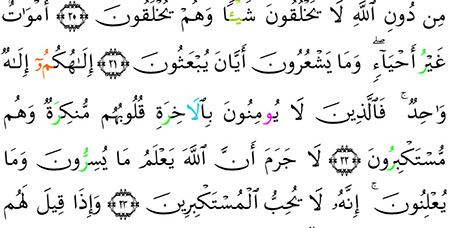 مِن دُونِ اللَّهِ لَا يَخْلُقُونَ شَيْـًٔا وَهُمْ يُخْلَقُونَ ﴿٢٠﴾ أَمْوَاتٌ
غَيْرُ أَحْيَآءٍۖ وَمَا يَشْعُرُونَ أَيَّانَ يُبْعَثُونَ ﴿٢١﴾ إِلَـٰهُكُمُۥٓ إِلَـٰهٌ
وَاحِدٌۚ فَالَّذِينَ لَا يُومِنُونَ بِالَاخِرَةِ قُلُوبُهُم مُّنكِرَةٌ وَهُم
مُّسْتَكْبِرُونَ ﴿٢٢﴾ لَا جَرَمَ أَنَّ اللَّهَ يَعْلَمُ مَا يُسِرُّونَ وَمَا
يُعْلِنُونَۚ إِنَّهُۥ لَا يُحِبُّ الْمُسْتَكْبِرِينَ ﴿٢٣﴾ وَإِذَا قِيلَ لَهُم